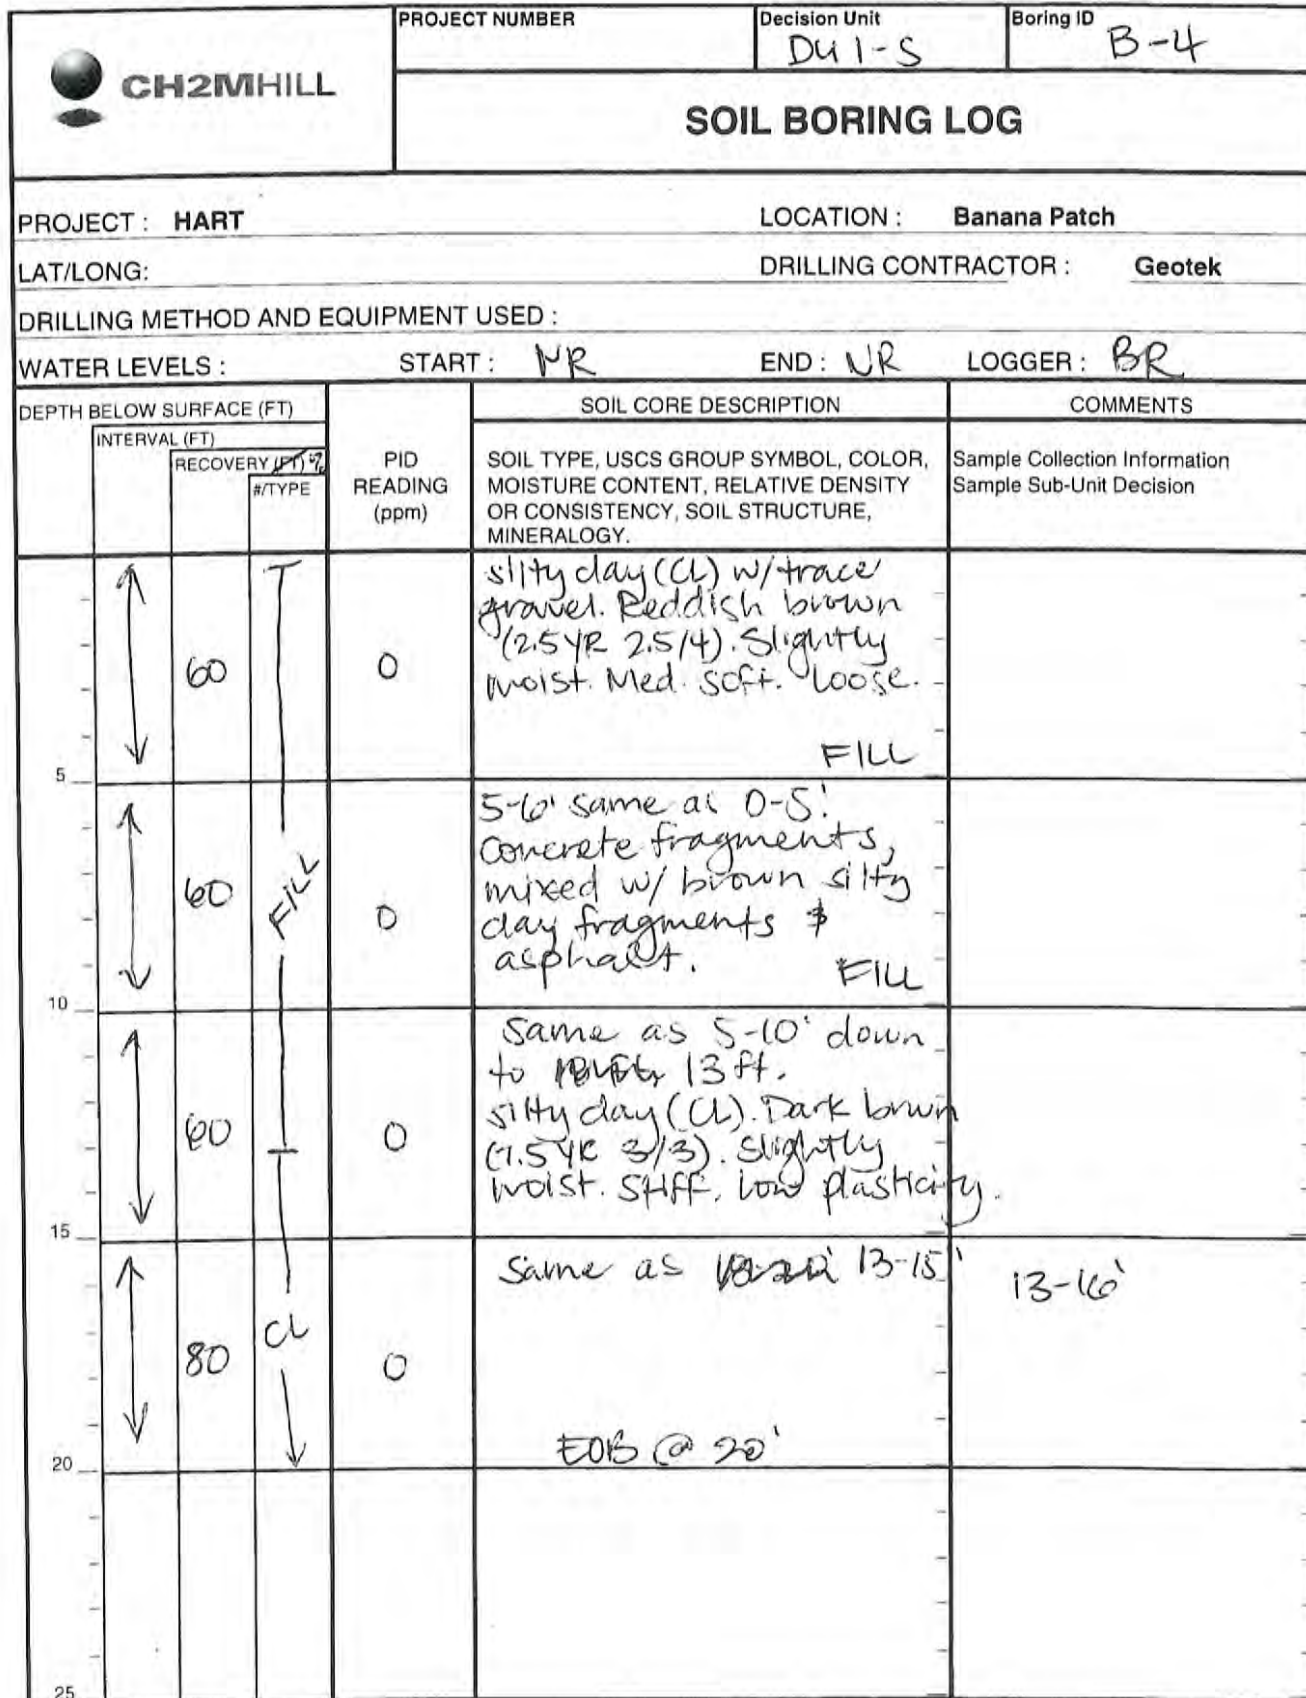 CH2MHILL
PROJECT NUMBER
Decision Unit
DU 1-S
Boring ID
B-4
SOIL BORING LOG
PROJECT : HART
LOCATION : Banana Patch
LAT/LONG:
DRILLING CONTRACTOR : Geotek
DRILLING METHOD AND EQUIPMENT USED :
WATER LEVELS : START : NR END : NR LOGGER : BR
DEPTH BELOW SURFACE (FT)
INTERVAL (FT)
RECOVERY (FT) %
#/TYPE
PID
READING
(ppm)
SOIL CORE DESCRIPTION
SOIL TYPE, USCS GROUP SYMBOL, COLOR,
MOISTURE CONTENT, RELATIVE DENSITY
OR CONSISTENCY, SOIL STRUCTURE,
MINERALOGY.
COMMENTS
Sample Collection Information
Sample Sub-Unit Decision
60
0
silty clay (CL) w/ trace
gravel. Reddish brown
(2.5 YR 2.5/4). Slightly
moist. Med. soft. Loose.
FILL
5
60
FILL
0
5-10' same as 0-5'.
Concrete fragments,
mixed w/ brown silty
clay fragments &
asphalt.
FILL
10
60
0
Same as 5-10' down
to 13 ft.
silty clay (CL). Dark brown
(7.5 YR 3/3). Slightly
moist. Stiff. Low plasticity.
15
80
CL
0
Same as 13-15'
13-16'
EOB @ 20'
20
25